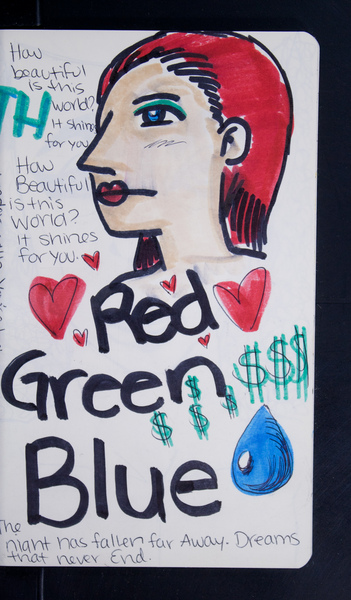 How
beautiful
is this
world?
It shines
for you
TH
How
Beautiful
is this
world?
It shines
for you.
Red
Green
$$$
$ $ $ $
Blue
The
night has fallen far Away. Dreams
that never End.